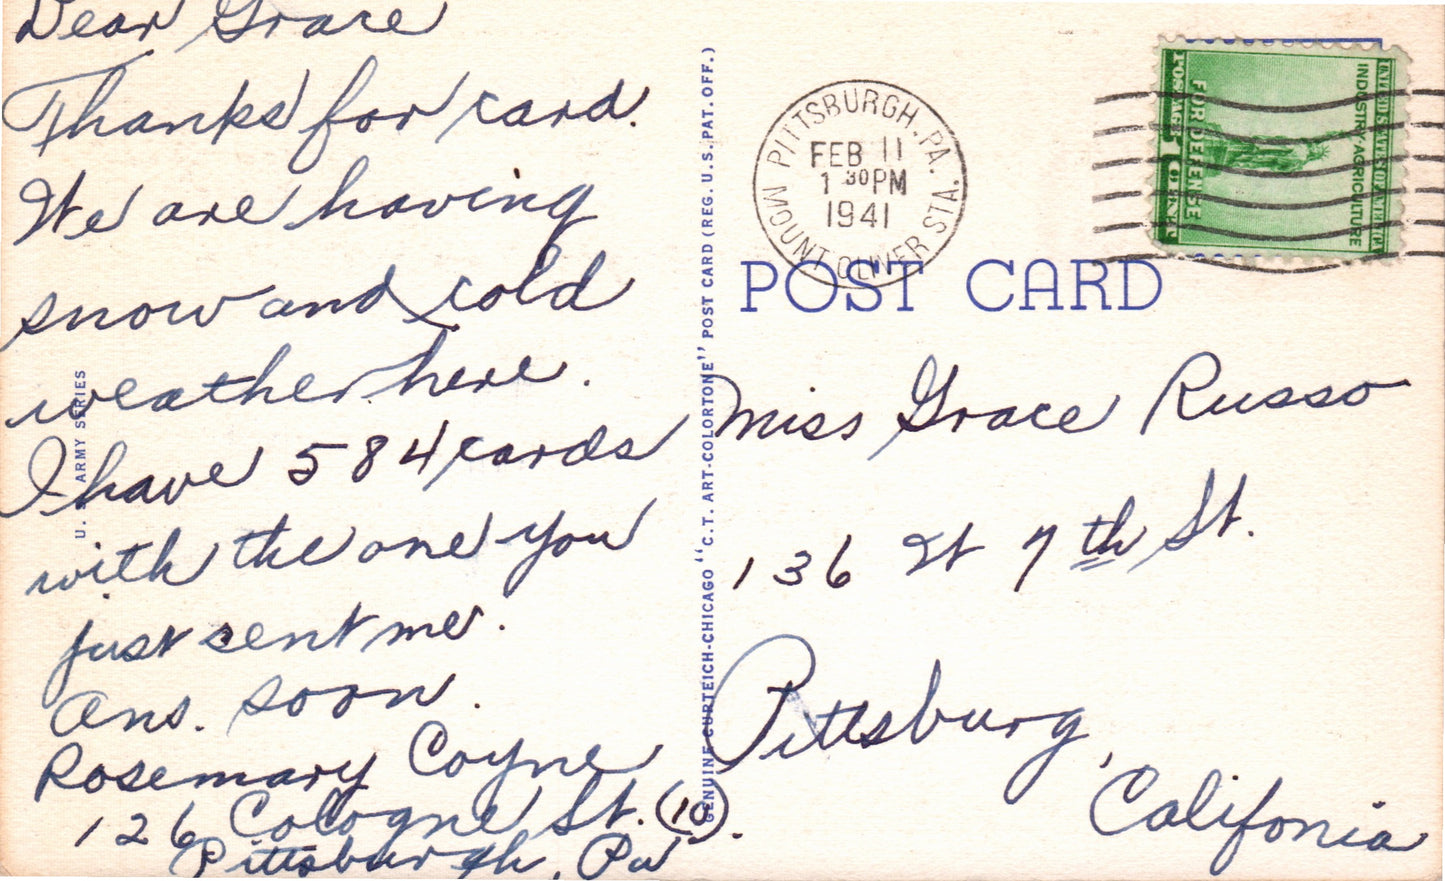 Dear Grace
Thanks for card.
We are having
snow and cold
weather here.
I have 584 cards
with the one you
just sent me.
Ans. soon.
Rosemary Coyne
126 Cologne St. (10).
Pittsburgh, Pa
U. S. ARMY SERIES
GENUINE CURTEICH-CHICAGO "C.T. ART-COLORTONE" POST CARD (REG. U.S. PAT. OFF.)
PITTSBURGH, PA.
FEB 11
1 30 PM
1941
MOUNT OLIVER STA.
UNITED STATES OF AMERICA
INDUSTRY AGRICULTURE
FOR DEFENSE
POSTAGE 1 CENT
POST CARD
Miss Grace Russo
136 W 7th St.
Pittsburg,
Califonia